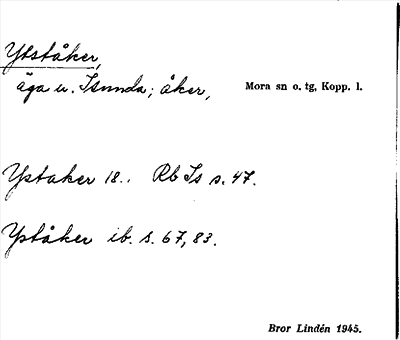 Ytståker,
äga u. Isunda; åker,
Mora sn o. tg, Kopp. l.
Ystaker 18.. Rb Is s. 47.
Yståker ib. s. 67, 83.
Bror Lindén 1945.